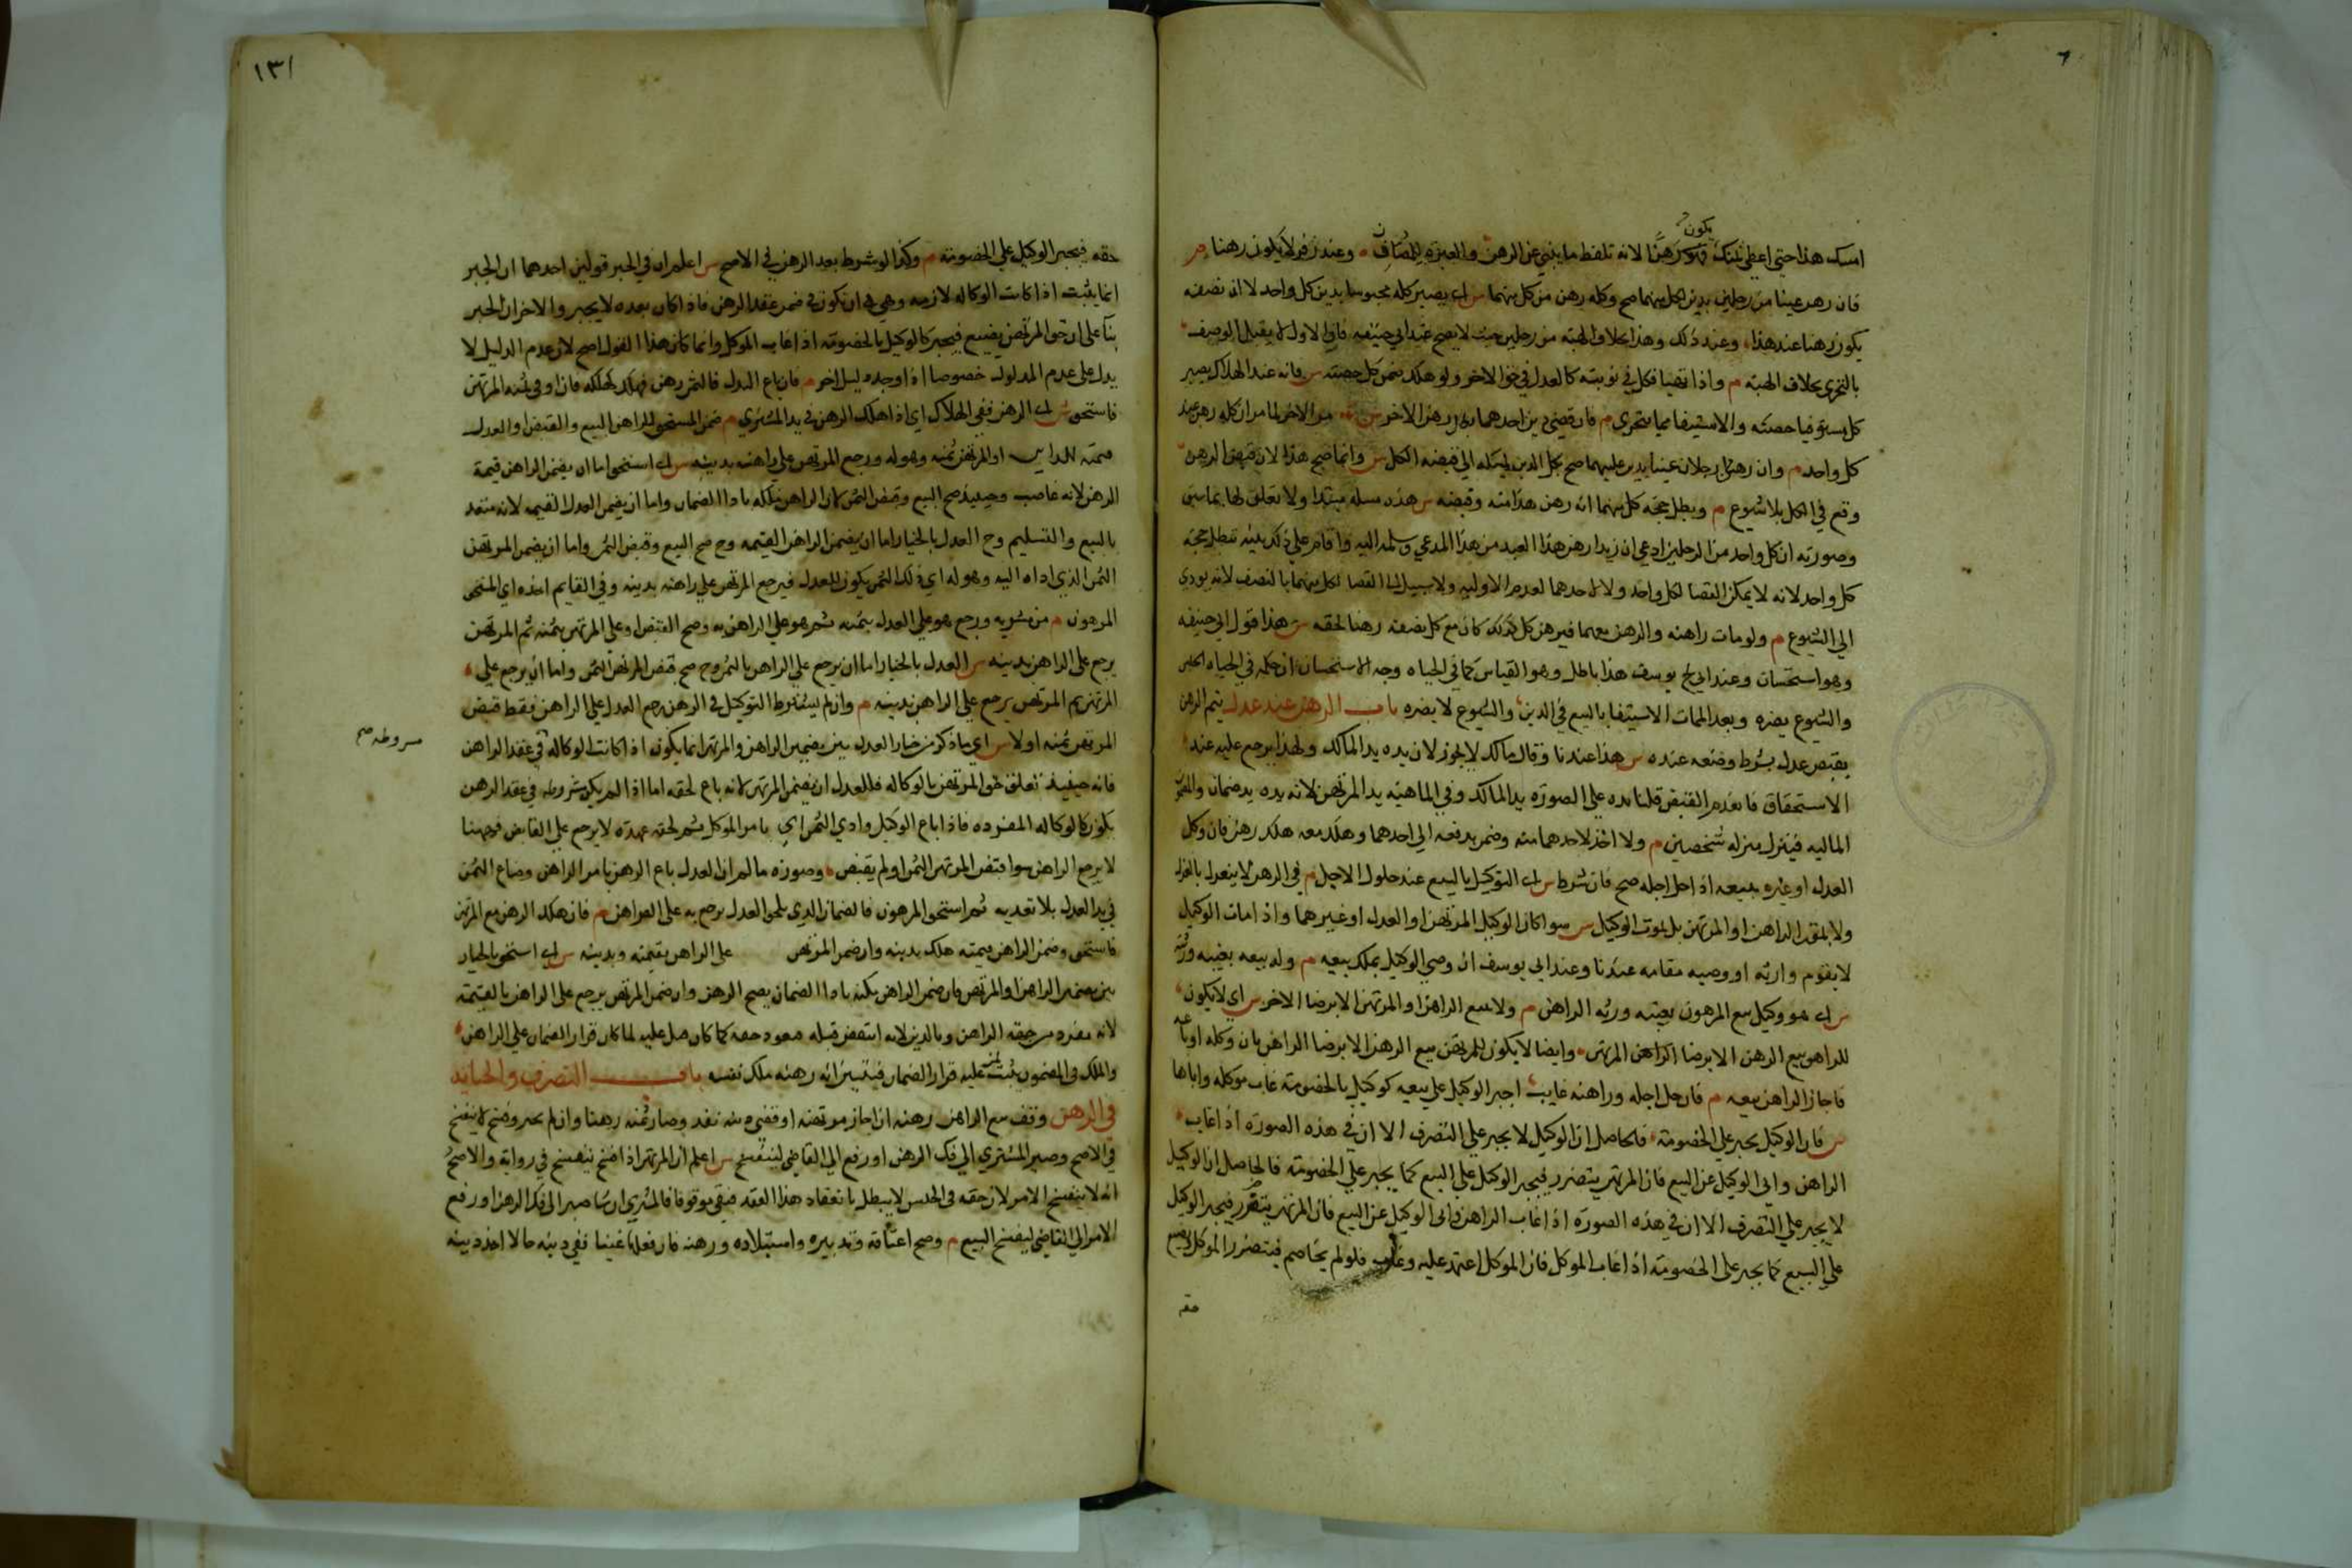 امسك هذا حتى اعطي ثمنك فهو رهنا لانه تلفظ ما ينبي عن الرهن والعبرة للمعاني وعند زفر لا يكون رهنا م
يكون
فان رهن عينا من رجلين بدين لكل منهما صح وكله رهن من كل منهما س اي يصير كله محبوسا بدين كل واحد لا ان نصفه
يكون رهنا عند هذا وعند ذلك وهذا بخلاف الهبة من رجلين حيث لا يصح عند ابي حنيفه فان الاول لا يقبل الوصف
بالتجزي بخلاف الهبة م واذا تهايا فكل في نوبته كالعدل في حق الاخر ولو هلك ضمن كل حصته س فانه عند الهلاك يصير
كل مستوفيا حصته والاستيفا مما يتجزي م فان قضي دين احدهما فكل رهن الاخر س لما مر ان كله رهن عند
كل واحد م وان رهنا رجلان عينا بدين عليهما صح بكل الدين يمسكه الي قبضه الكل س وانما صح هذا لان قبض الرهن
وقع في الكل بلا شيوع م وبطل حجة كل منهما انه رهن هذا منه وقبضه س هذه مسله مبتدا ولا تعلق لها بما سبق
وصورته ان كل واحد من الرجلين ادعي ان زيدا رهن هذا العبد من هذا المدعي وسلمه اليه واقام علي ذلك بينه تبطل حجة
كل واحد لانه لا يمكن القضا لكل واحد ولا لاحدهما لعدم الاوليه ولا سبيل الي القضا لكل منهما بالنصف لانه يودي
الي الشيوع م ولو مات راهنه والرهن معهما فبرهن كل كذلك كان مع كل نصفه رهنا لحقه س هذا قول ابي حنيفه
وهو استحسان وعند ابي يوسف هذا باطل وهو القياس كما في الحياه وجه الاستحسان ان حكمه في الحياه الحبس
والشيوع يضره وبعد الممات الاستيفا بالبيع في الدين والشيوع لا يضره باب الرهن عند عدل يتم الرهن
بقبض عدل بشرط وضعه عنده س هذا عندنا وقال مالك لا يجوز لان يده يد المالك ولهذا يرجع عليه عند
الاستحقاق فانعدم القبض قلنا يده علي الصورة يد المالك وفي الماهية يد المرتهن لانه يده يد ضمان والمضمون
الماليه فينزل منزله شخصين م ولا اخذ لاحدهما منه وضمن بدفعه الي احدهما وهلك معه هلك رهن فان وكل
العدل او غيره ببيعه اذا حل اجله صح فان شرط س اي التوكيل بالبيع عند حلول الاجل م في الرهن لا ينعزل بالعزل
ولا بموت الراهن او المرتهن بل بموت الوكيل س سوا كان الوكيل المرتهن او العدل او غيرهما واذا مات الوكيل
لا يقوم وارثه او وصيه مقامه عندنا وعند ابي يوسف ان وصي الوكيل يملك بيعه م وله بيعه بغيبة ورثته
س اي هو وكيل بيع المرهون بغيبة ورثه الراهن م ولا يبيع الراهن او المرتهن الا برضا الاخر س اي لا يكون
للراهن بيع الرهن الا برضا المرتهن وايضا لا يكون للمرتهن بيع الرهن الا برضا الراهن بان وكله او باعه
فاجاز الراهن بيعه م فان حل اجله وراهنه غايب اجبر الوكيل علي بيعه كوكيل بالخصومة غاب موكله واباها
س فان الوكيل يجبر علي الخصومة فالحاصل ان الوكيل لا يجبر علي التصرف الا ان في هذه الصورة اذا غاب
الراهن وابي الوكيل عن البيع فان المرتهن يتضرر فيجبر الوكيل علي البيع كما يجبر علي الخصومة فالحاصل ان الوكيل
لا يجبر علي التصرف الا ان في هذه الصورة اذا غاب الراهن وابي الوكيل عن البيع فان المرتهن يتضرر فيجبر الوكيل
علي البيع كما يجبر علي الخصومة اذا غاب الموكل فان الموكل اعتمد عليه وغاب فلو لم يخاصم فيتضرر الموكل ويضيع
حقه
١٣١
حقه فيجبر الوكيل علي الخصومة م وكذا لو شرط بعد الرهن في الاصح س اعلم ان في الجبر قولين احدهما ان الجبر
انما يثبت اذا كانت الوكاله لازمه وهي ان تكون في ضمن عقد الرهن فاذا كان بعده لا يجبر والاخر ان الجبر
بنا علي ان حق المرتهن يضيع فيجبر كالوكيل بالخصومة اذا غاب الموكل وانما كان هذا القول اصح لان عدم الدليل لا
يدل علي عدم المدلول خصوصا اذا وجد دليل اخر م فان باع العدل فالثمن رهن فهلكه كهلكه فان اوفي ثمنه المرتهن
فاستحق س اي الرهن ففي الهلاك اي اذا هلك الرهن في يد المشتري م ضمن المستحق الراهن وصح البيع والقبض او العدل
قيمته للراهن او المرتهن ثمنه وهو له ورجع المرتهن علي راهنه بدينه س اي استحق اما ان يضمن الراهن قيمة
الرهن لانه غاصب وحينيذ صح البيع وقبض الثمن لان الراهن ملكه باداا الضمان واما ان يضمن العدل القيمه لانه متعد
بالبيع والتسليم وح العدل بالخيار اما ان يضمن الراهن القيمه وح صح البيع وقبض الثمن واما ان يضمن المرتهن
الثمن الذي اداه اليه وهو له اي ذلك الثمن يكون للعدل فيرجع المرتهن علي راهنه بدينه وفي القايم اخذه اي المستحق
المرهون م من مشتريه ورجع هو علي العدل بثمنه ثم هو علي الراهن به وصح القبض او علي المرتهن بثمنه ثم المرتهن
يرجع علي الراهن بدينه س العدل بالخيار اما ان يرجع علي الراهن بالثمن وح صح قبض المرتهن الثمن واما ان يرجع علي
المرتهن ثم المرتهن يرجع علي الراهن بدينه م وان لم يشترط التوكيل في الرهن رجع العدل علي الراهن فقط قبض
المرتهن ثمنه او لا س اي ما ذكر من خيار العدل بين تضمين الراهن والمرتهن انما يكون اذا كانت الوكاله في عقد الراهن
مشروطه صح
فانه حينيذ تعلق حق المرتهن بالوكاله فللعدل ان يضمن المرتهن لانه باع لحقه اما اذا لم يكن مشروطه في عقد الرهن
يكون كالوكاله المفرده فاذا باع الوكيل وادي الثمن الي بامر الموكل ثم لحقه عهدة لا يرجع علي القابض فههنا
لا يرجع الراهن سوا قبض المرتهن الثمن او لم يقبض وصورة ما لم ان العدل باع الرهن بامر الراهن وضاع الثمن
في يد العدل بلا تعديه ثم استحق المرهون فالضمان الذي يلحق العدل يرجع به علي الراهن م فان هلك الرهن مع المرتهن
فاستحق وضمن الراهن قيمته هلك بدينه وان ضمن المرتهن علي الراهن بقيمته وبدينه س اي استحق بالخيار
بين تضمين الراهن او المرتهن فان ضمن الراهن يملكه باداا الضمان يصح الرهن وان ضمن المرتهن يرجع علي الراهن بالقيمة
لانه مغرور من جهة الراهن وبالدين لانه انتقض قبضه فيعود حقه كما كان قيل عليه لما كان قرار الضمان علي الراهن
والملك في المضمون يثبت لمن عليه قرار الضمان فيتبين انه رهنه ملك نفسه باب التصرف والجنايه
في الرهن وقف بيع الراهن رهنه ان اجاز مرتهنه او قضي دينه نفذ وصار ثمنه رهنا وان لم يجز وفسخ لا ينفسخ
في الاصح وصبر المشتري الي فك الرهن او رفع الي القاضي ليفسخ س اعلم ان المرتهن اذا فسخ ينفسخ في رواية والاصح
انه لا ينفسخ الامر لان حقه في الحبس لا يبطل بانعقاد هذا العقد فبقي موقوفا فالمشتري ان شا صبر الي فك الرهن او رفع
الامر الي القاضي ليفسخ البيع م وصح اعتاقه وتدبيره واستيلاده ورهنه فان فعلها غنيا ففي دينه حالا اخذ دينه